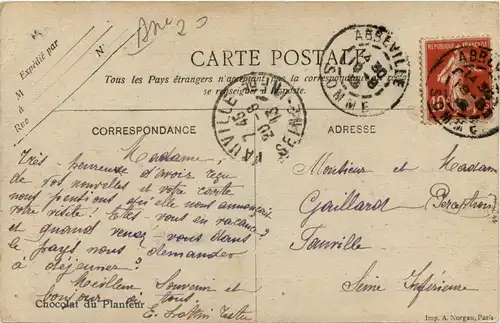 Expédié par
M
à
Rue
N°
CARTE POSTALE
Tous les Pays étrangers n'acceptent pas la correspondance
se renseigner à la Poste.
ABBEVILLE
SOMME
ABBEVILLE
RÉPUBLIQUE FRANÇAISE
CORRESPONDANCE
ADRESSE
Madame,
Très-heureuse d'avoir reçu
de vos nouvelles et votre carte
nous pensions qu'elle nous annonçait
votre visite! Êtes vous en vacances?
et quand venez-vous dans
le pays nous demander
à déjeuner?
Meilleur Souvenir et
bonjour de tous.
Monsieur et Madame
Gaillard
Fauville
Seine Inférieure
Chocolat du Planteur
Imp. A. Norgeu, Paris